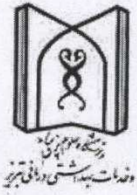 دانشگاه علوم پزشکی
و خدمات بهداشتی درمانی تبریز